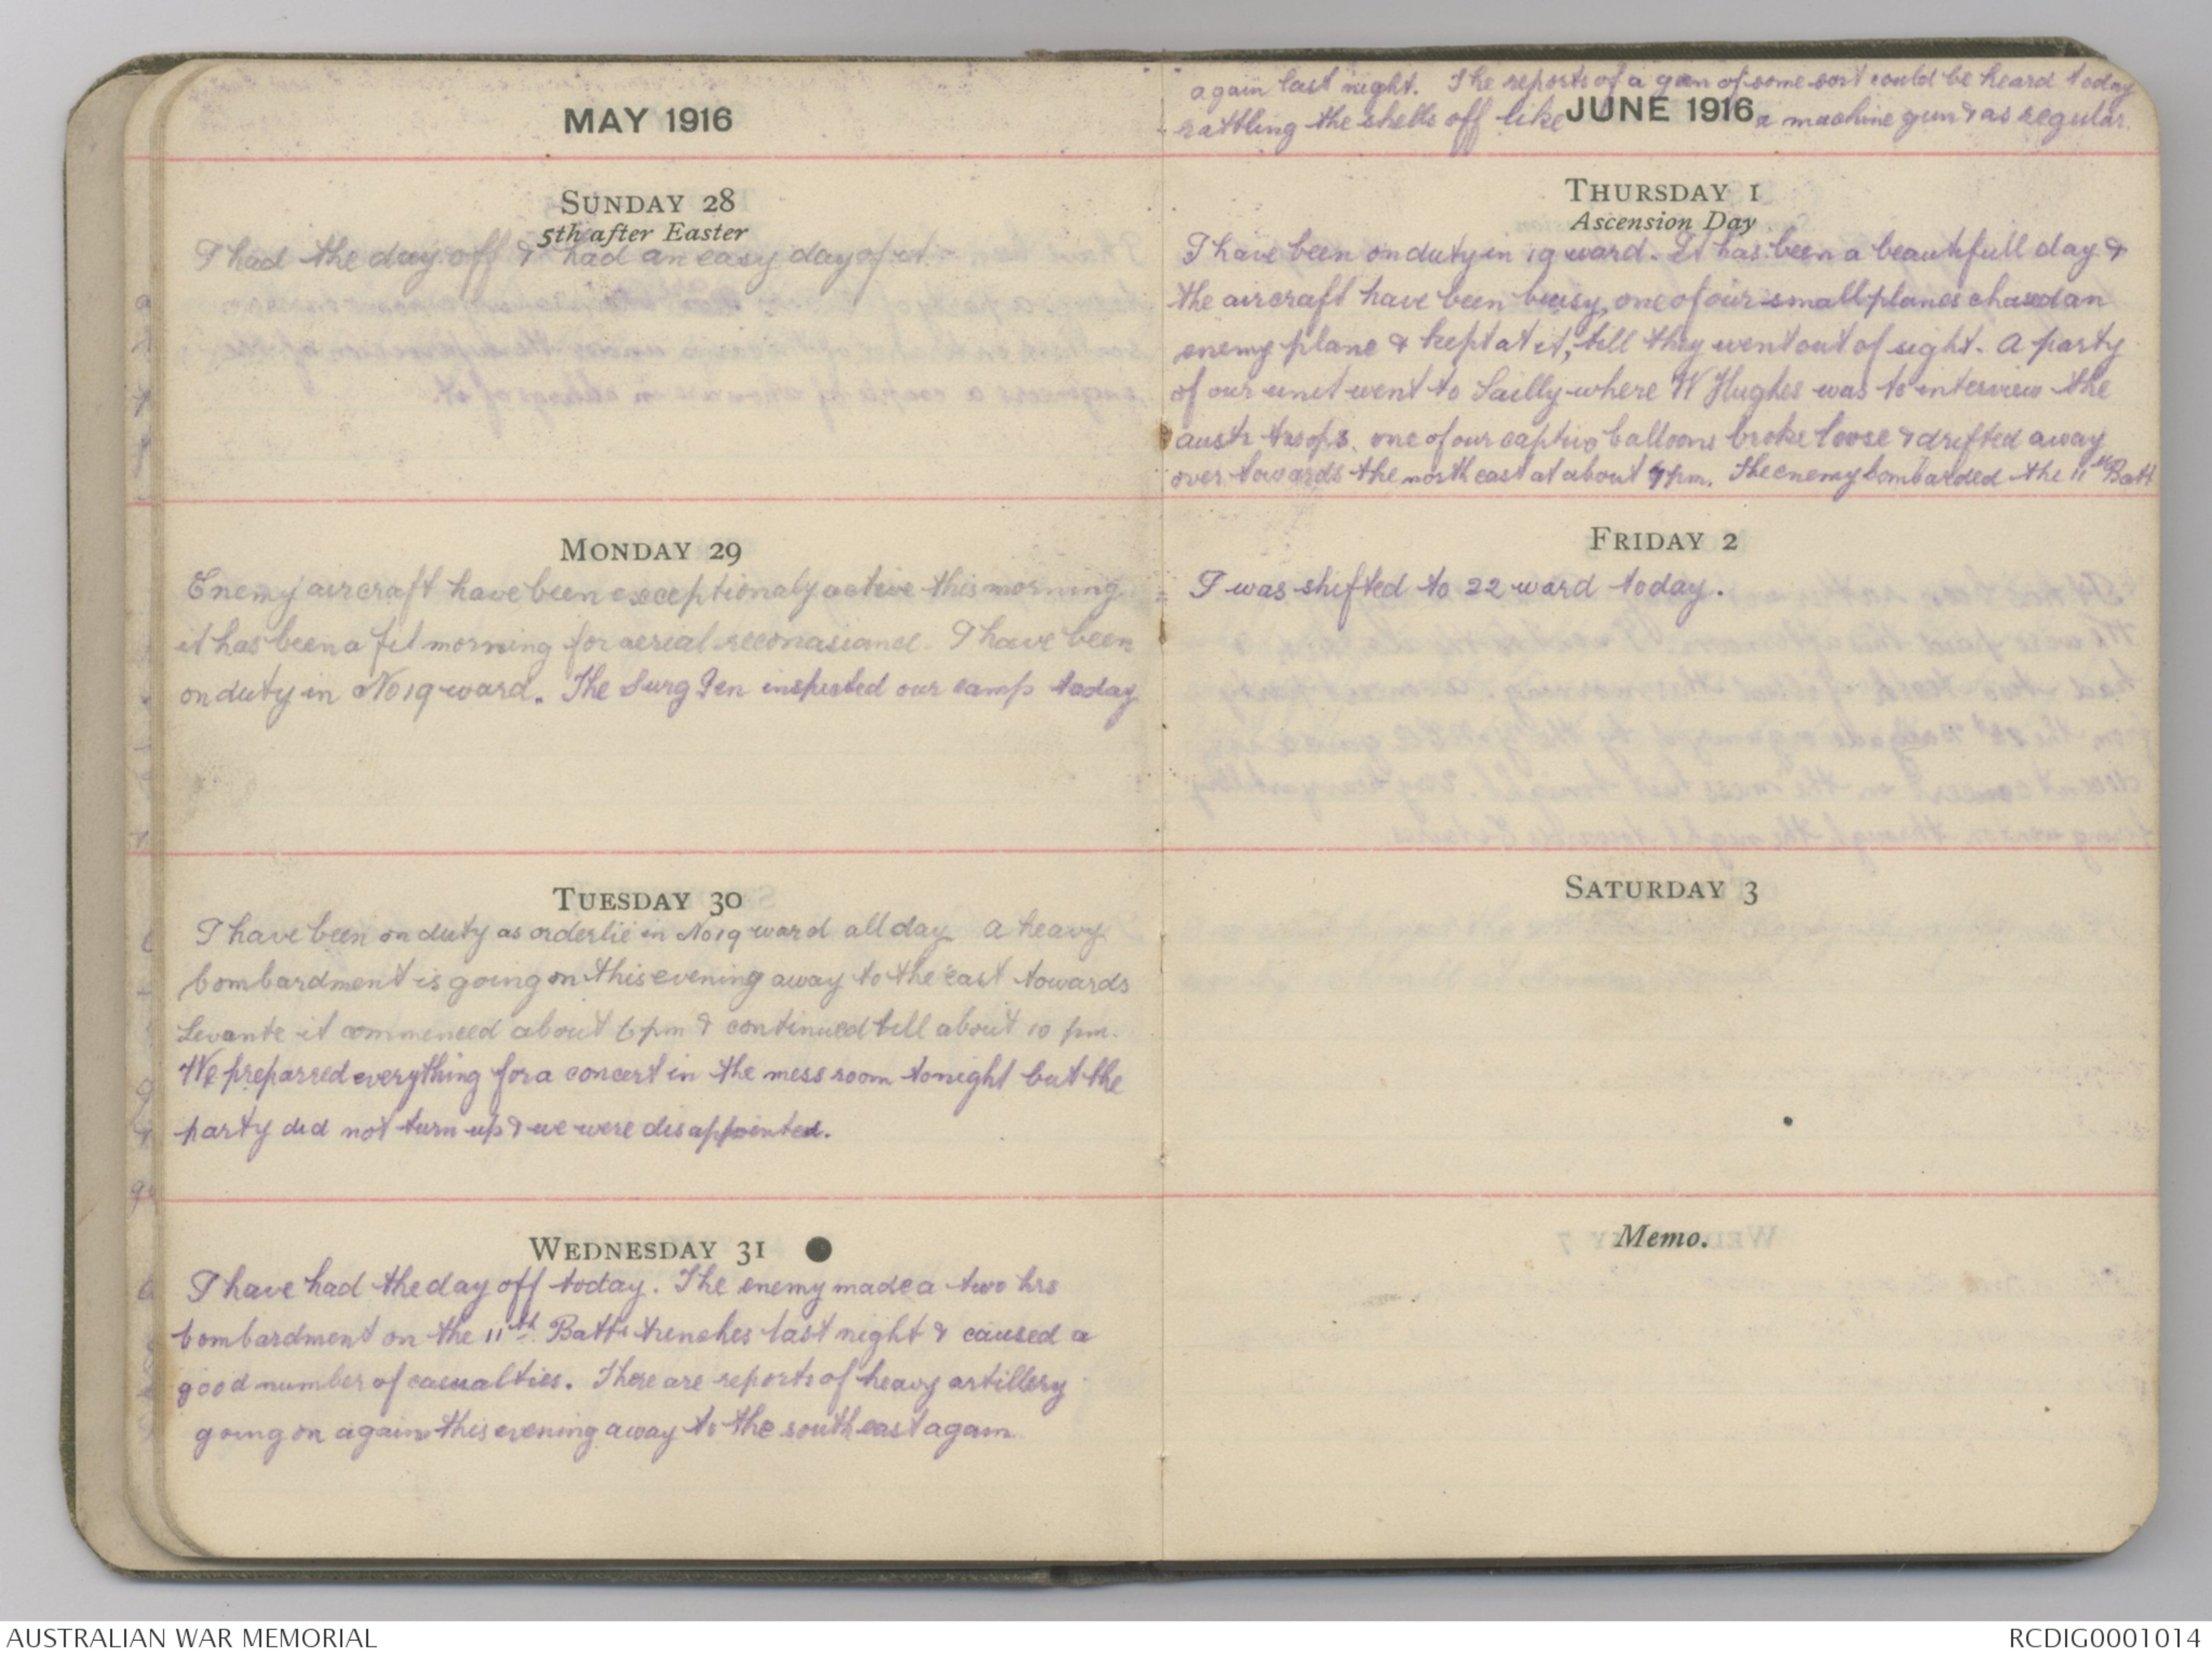 MAY 1916
SUNDAY 28
5th after Easter
I had the day off & had an easy day of it.
MONDAY 29
Enemy aircraft have been exceptionaly active this morning
it has been a fit morning for aerial reconasiance. I have been
on duty in No 19 ward. The Surg Gen inspected our camp today
TUESDAY 30
I have been on duty as orderlie in No 19 ward all day a heavy
bombardment is going on this evening away to the east towards
Levante it commenced about 6 pm & continued till about 10 pm.
We preparred everything for a concert in the mess room tonight but the
party did not turn up & we were disappointed.
WEDNESDAY 31
I have had the day off today. The enemy made a two hrs
bombardment on the 11th Batts trenches last night & caused a
good number of casualties. There are reports of heavy artillery
going on again this evening away to the south east again
again last night. The reports of a gun of some sort could be heard today
rattling the shells off like a machine gun & as regular.
JUNE 1916
THURSDAY 1
Ascension Day
I have been on duty in 19 ward. It has been a beautifull day &
the aircraft have been busy, one of our small planes chased an
enemy plane & kept at it, till they went out of sight. A party
of our unit went to Sailly where W Hughes was to interview the
austr troops. one of our captive balloons broke loose & drifted away
over towards the north east at about 7 pm. The enemy bombarded the 11th Batt
FRIDAY 2
I was shifted to 22 ward today.
SATURDAY 3
Memo.
AUSTRALIAN WAR MEMORIAL
RCDIG0001014